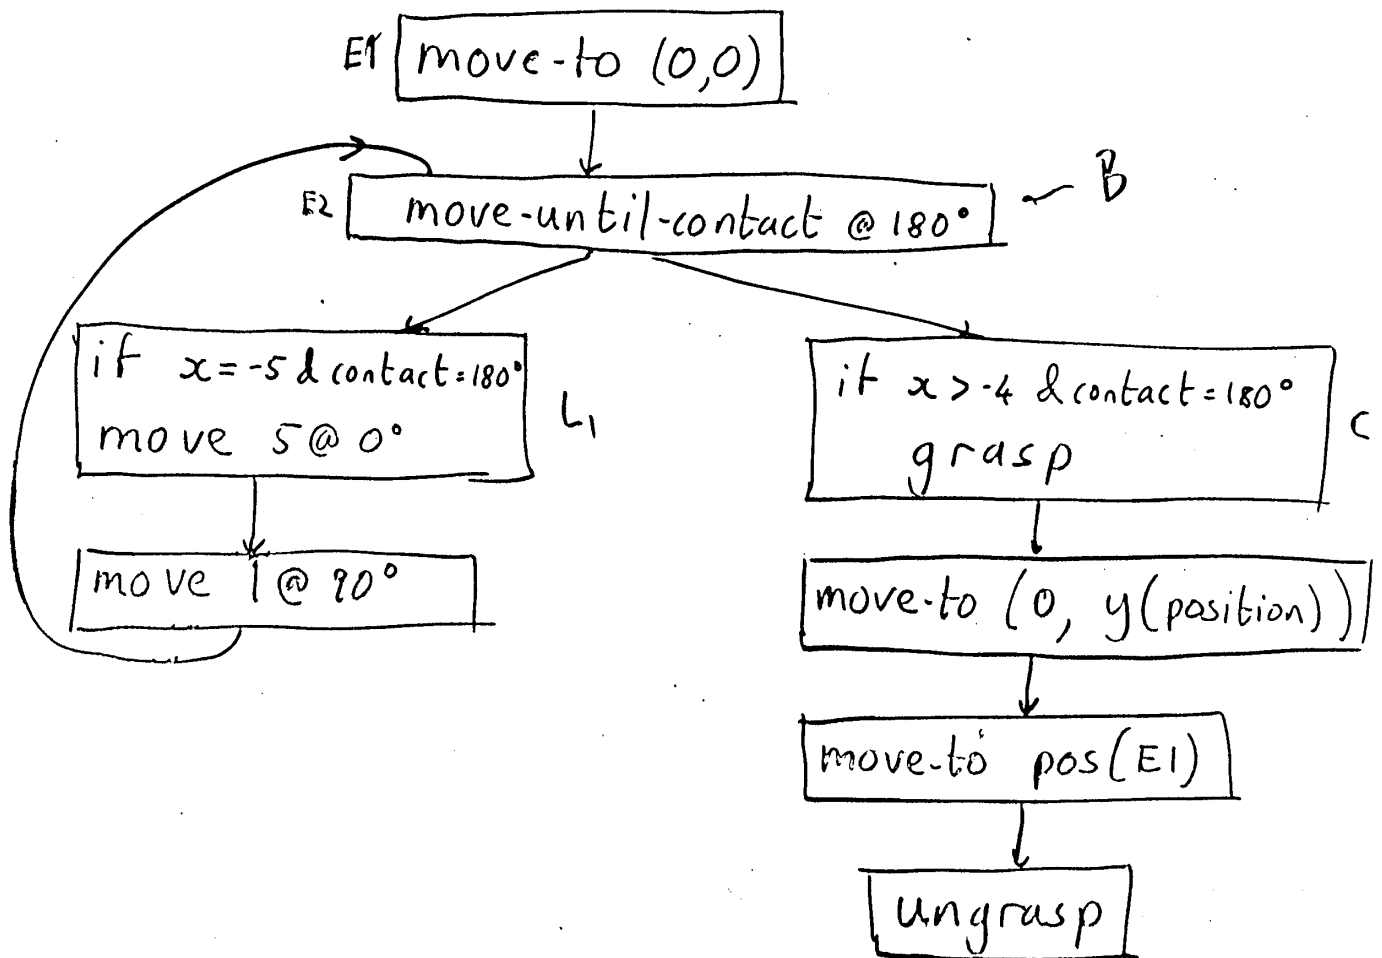 E1 move-to (0,0)
E2 move-until-contact @ 180° B
if x = -5 & contact = 180°
move 5 @ 0°
L1
if x > -4 & contact = 180°
grasp
C
move 1 @ 90°
move-to (0, y(position))
move-to pos(E1)
ungrasp